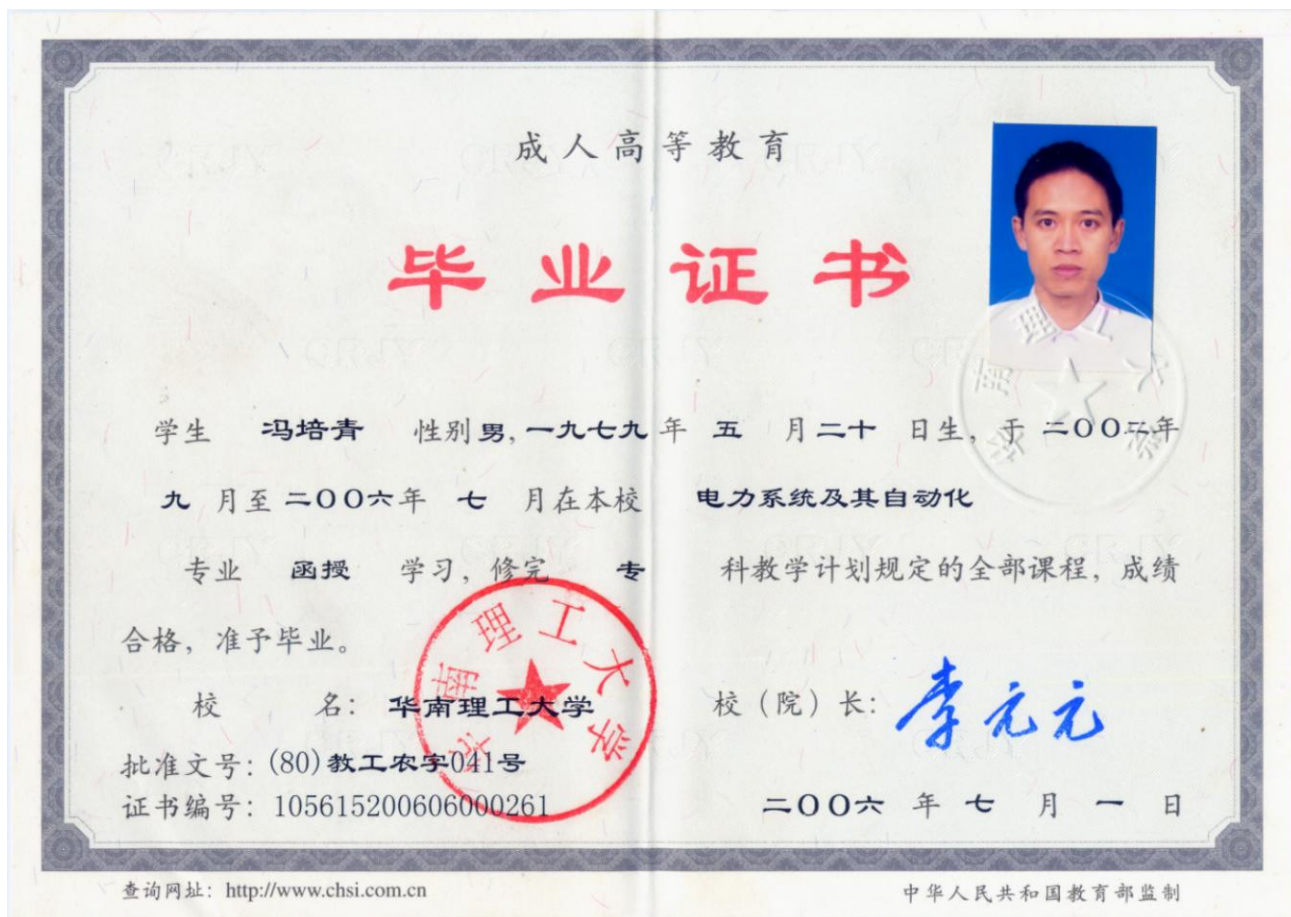 成人高等教育
毕业证书
学生 冯培青 性别男,一九七九年 五 月二十 日生,于 二〇〇二年
九 月至 二〇〇六年 七 月在本校 电力系统及其自动化
专业 函授 学习,修完 专 科教学计划规定的全部课程,成绩
合格,准予毕业。
华南理工大学
校 名: 华南理工大学 校(院)长: 李元元
批准文号:(80)教工农字041号
证书编号:105615200606000261 二〇〇六 年 七 月 一 日
查询网址:http://www.chsi.com.cn 中华人民共和国教育部监制